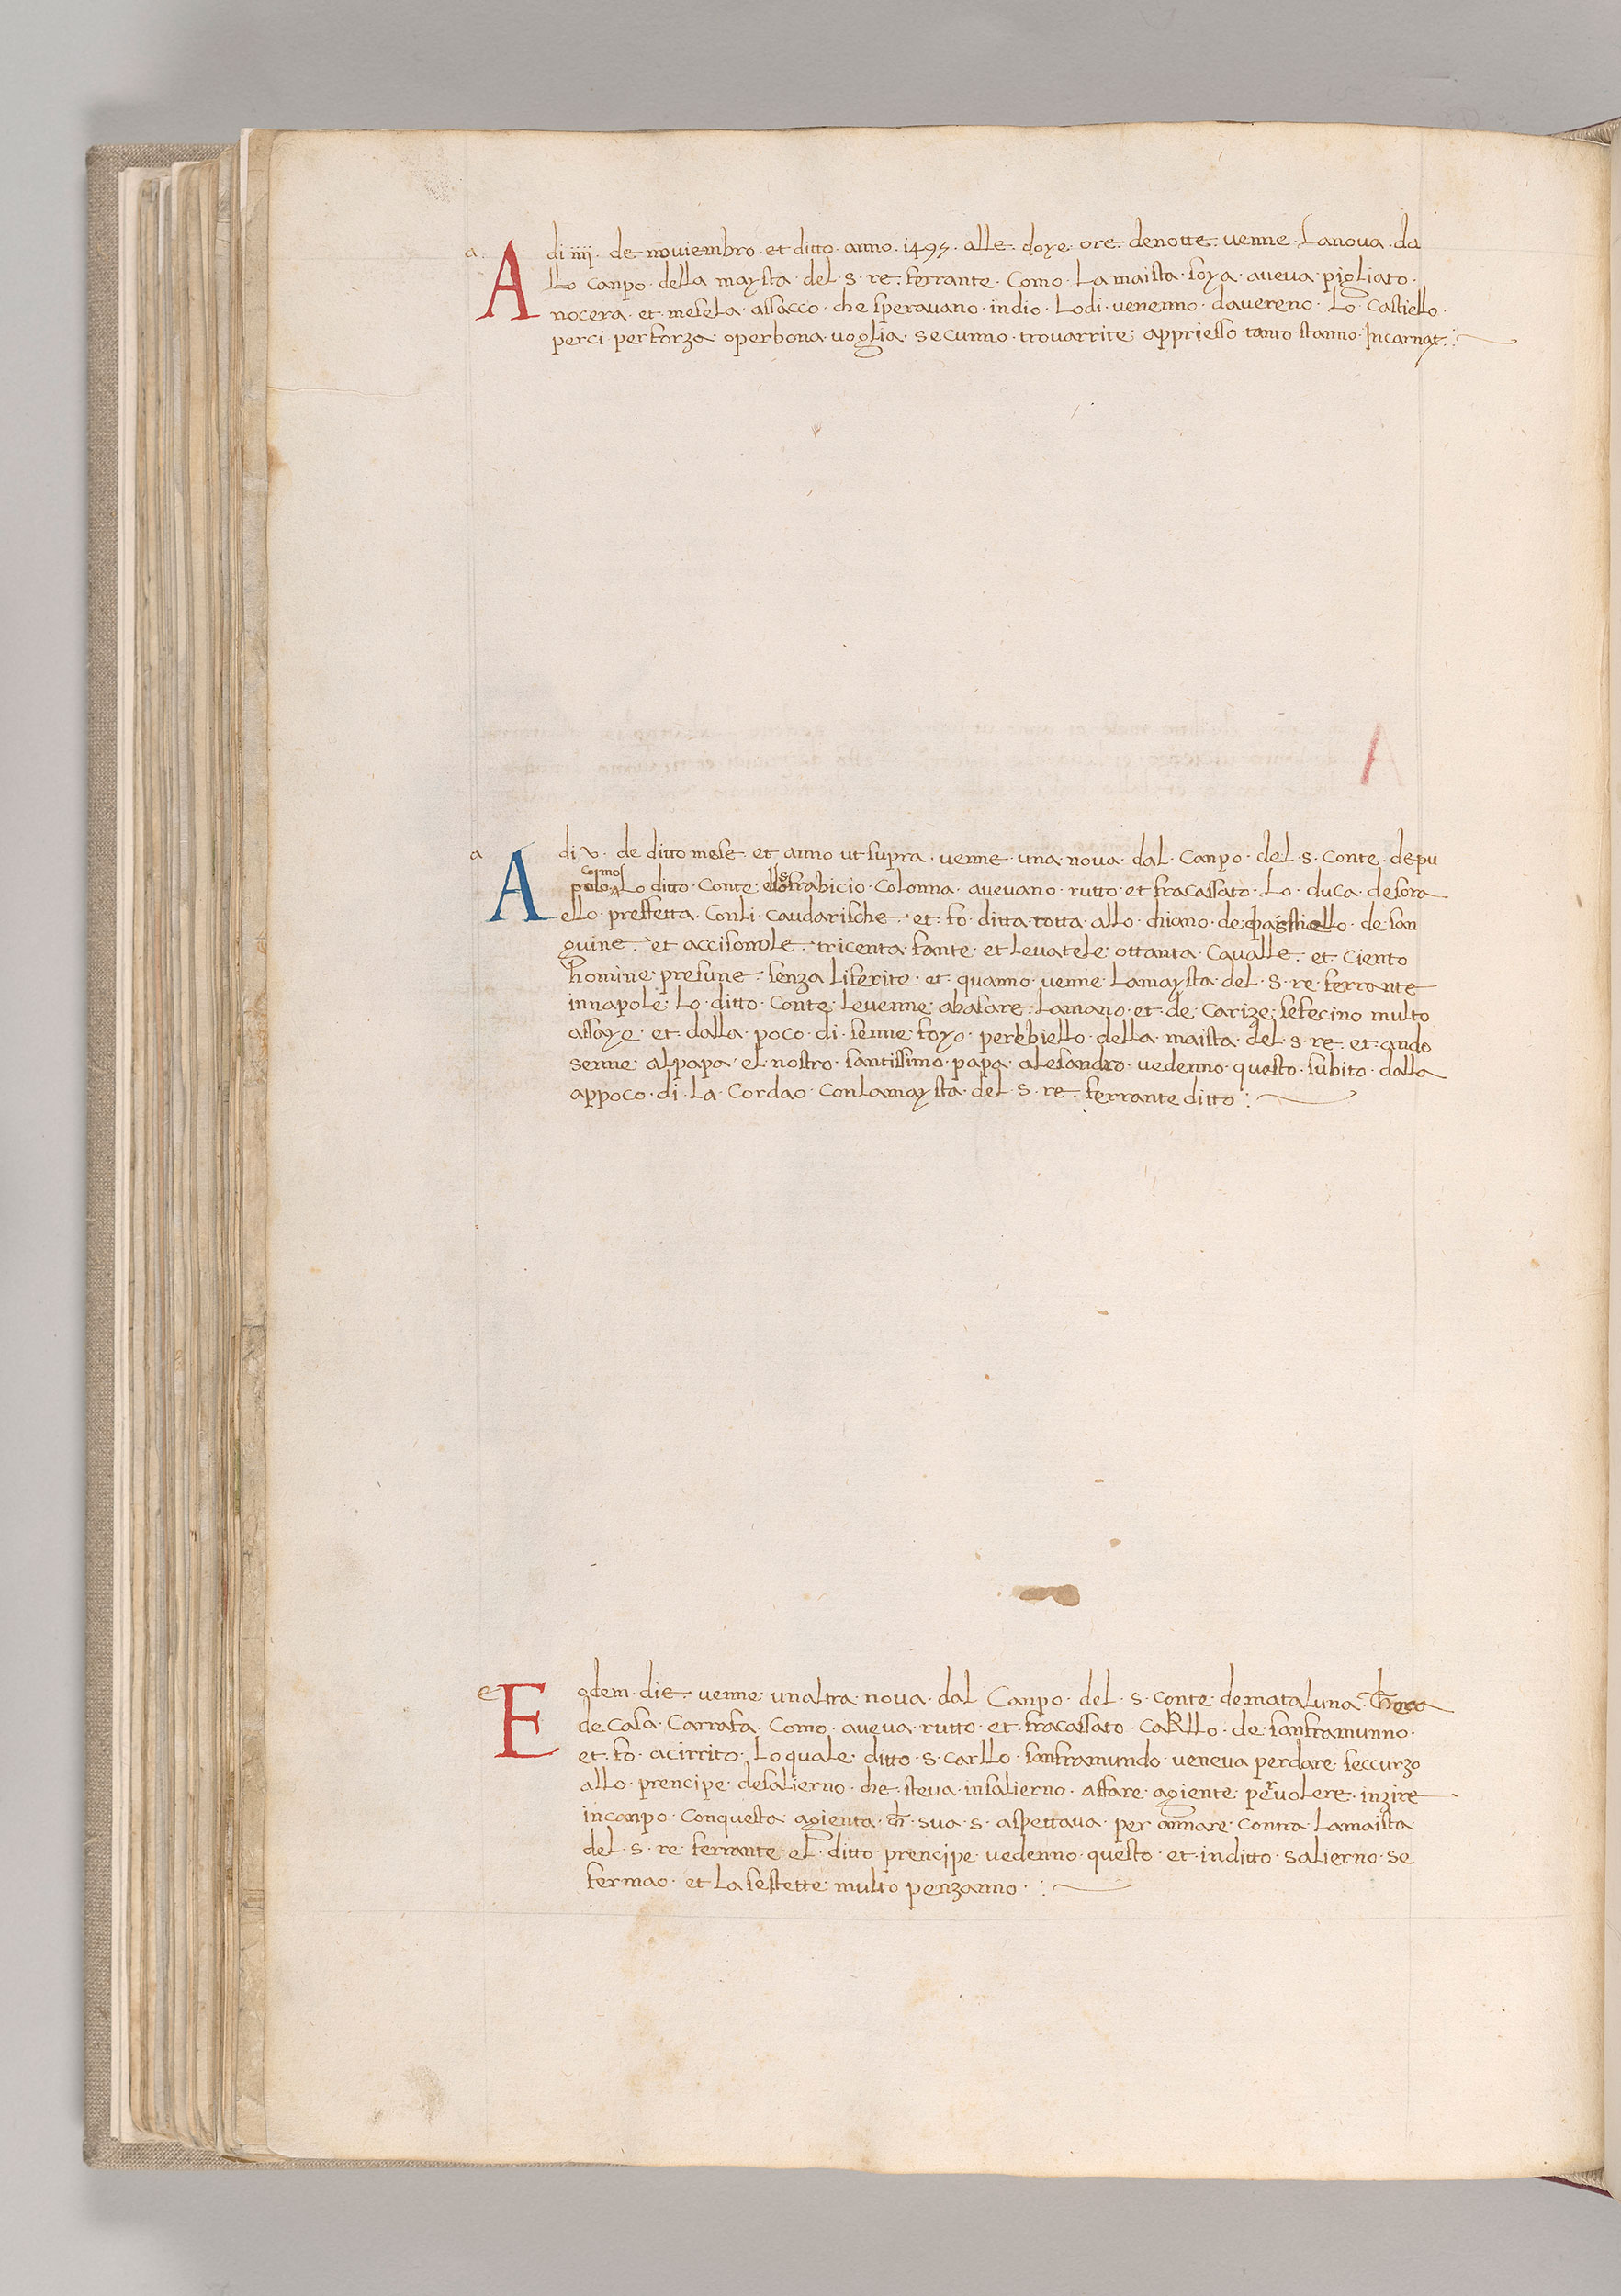 a.
A di iiii. de noviembro. et ditto. anno. 1495. alle. doye. ore. denotte. venne. Lanova. da
llo canpo. della maysta. del. s. re. ferrante. Como. La maista. soya. aveva. pigliato.
nocera. et. mesela. assacco. che speravano. indio. Lodi. venenno. davereno. Lo. Castiello.
perci. perforza. operbona. voglia. secunno. trovarrite. appriesso. tanto stanno. Incarnat.
a
A di v. de ditto mese. et anno ut supra. venne. una. nova. dal. Canpo. del. s. Conte. depu
Lo ditto. Conte. frabicio. Colonna. avevano. rutto. et fracassato. Lo. duca. desora
ello. preffetta. Conli. caudarische. et. fo. ditta. rotta. allo. chiano. de de san
guine. et accisonole. tricenta. fante. et Levatele. ottanta. Cavalle. et. Ciento
homine. presune. senza Liferite. et. quanno. venne. Lamaysta. del. S. re. ferrante
innapole. Lo. ditto. Conte. Levenne. abasare. Lamano. et. de. Carize. sefecino multo
assaye. et. dalla. poco. di. senne foyo. perebiello. della. maista. del. s. re. et. ando
senne. alpapa. el. nostro. santissimo. papa. alesandro. vedenno. questo. subito. dalla
appoco. di. La. Cordao. Conlamaysta. del. S. re. ferrante ditto :
e
E odem. die. venne. unaltra. nova. dal Canpo. del. s. conte. demataluna.
de Casa. Carrafa. Como. aveva. rutto. et. fracassato. CaRllo. de. sanframunno.
et. fo. acirrito. Lo quale. ditto. s. carllo. sanframundo. veneva perdare. seccurzo
allo. prencipe. desalierno. che. steva. insalierno. affare. agiente. per volere. inzire.
incanpo. Conquesta agienta. ch. sua. s. aspettava. per annare. contra. Lamaista
del. s. re. ferrante. el. ditto. prencipe. vedenno. questo. et. inditto. salierno. se
fermao. et Lasestette. multo penzanno. :